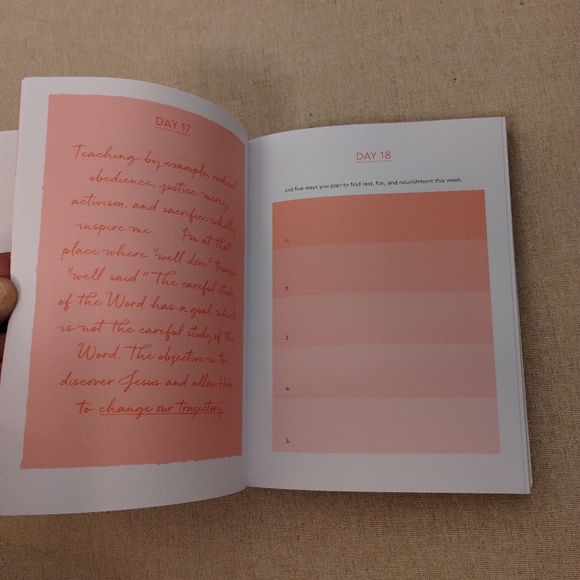 DAY 17
Teaching by example, radical
obedience, justice, mercy,
activism, and sacrifice wholly
inspire me. . . . . I'm at that
place where "well done" trumps
"well said." The careful study
of the Word has a goal, which
is not the careful study of the
Word. The objective is to
discover Jesus and allow Him
to change our trajectory.
DAY 18
List five ways you plan to find rest, fun, and nourishment this week.
1.
2.
3.
4.
5.